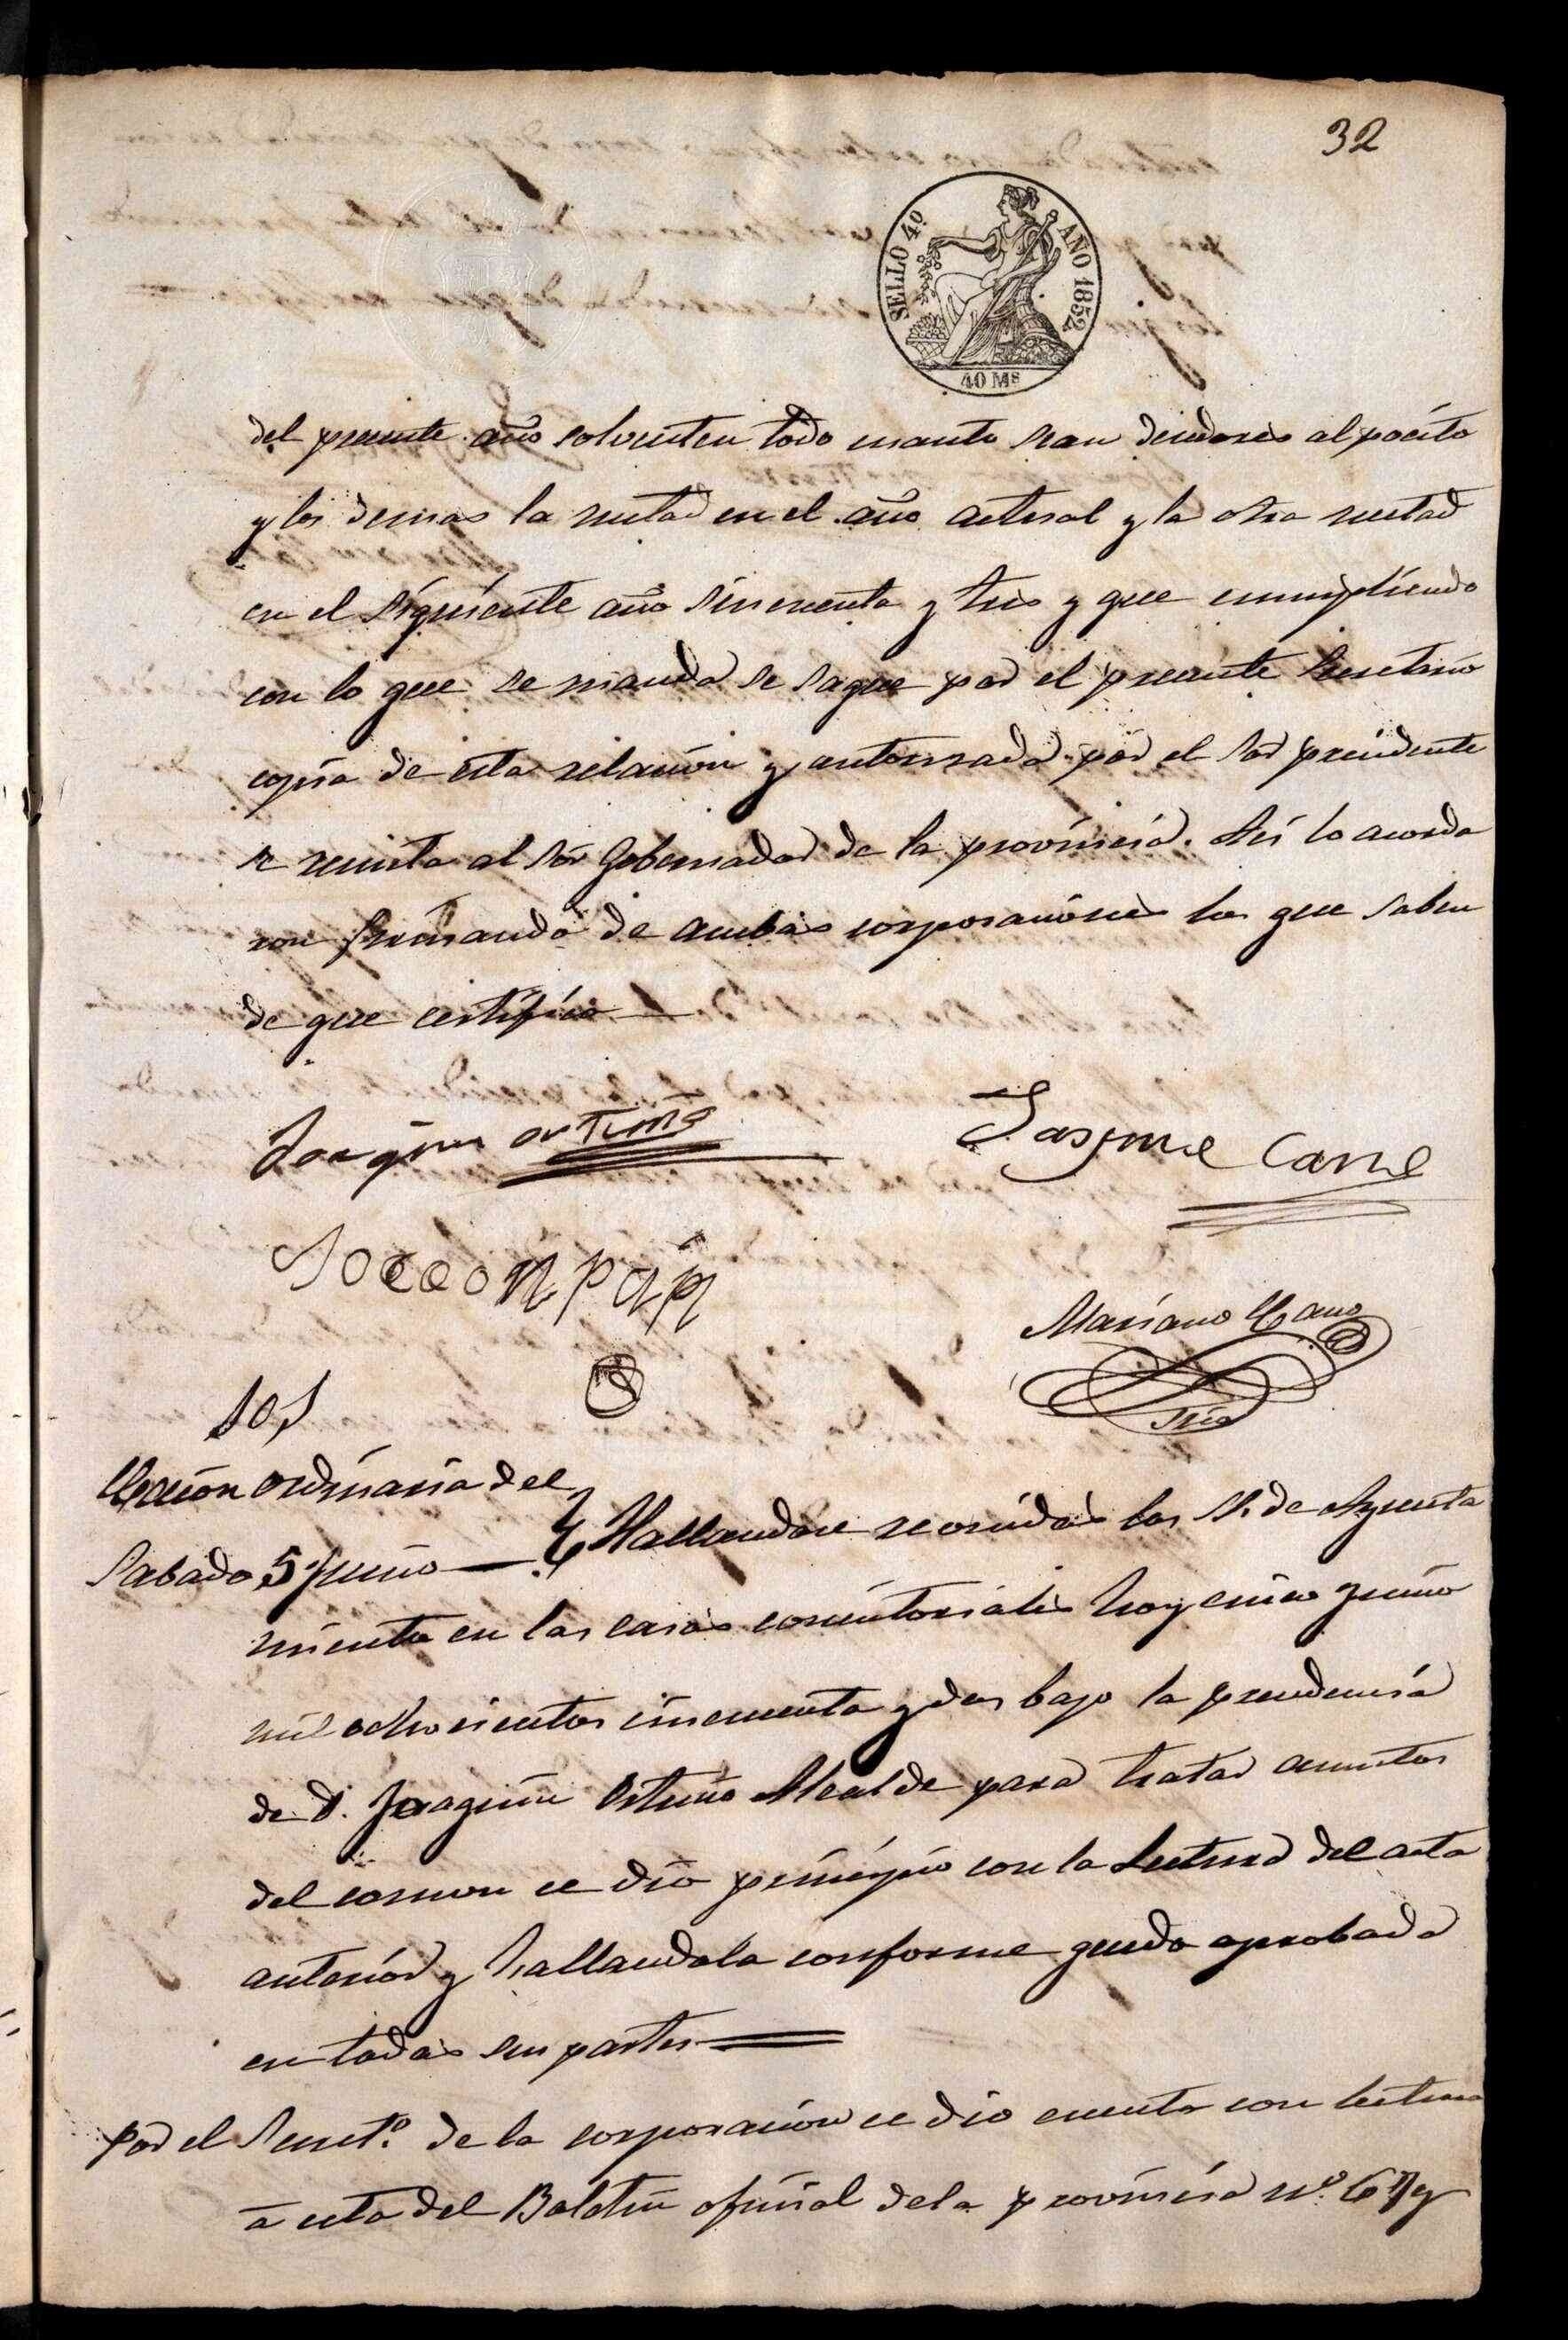 32
SELLO 4º AÑO 1852
40 Ms
del presente año solventen todo cuanto sean deudores al pocito
y los demas la mitad en el año actual y la otra mitad
en el siguiente año sincuenta y tres y que cumpliendo
con lo que se manda se saque por el presente Secretario
copia de esta relacion y autorizada por el Sor presidente
se remita al Sor Gobernador de la provincia. Asi lo acorda
ron firmando de ambas corporaciones los que saben
de que certifico
Joaquin ortuño
Jayme Carre
Mariano Cano
Srio
Secion ordinaria del
Sabado 5 Junio
Hallandose reonidos los SS. de Ayunta
miento en las casas concitoriales hoy cinco Junio
mil ochocientos cincuenta y dos bajo la presidencia
de D. Joaquin Ortuño Alcalde para tratar asuntos
del comun ce dio principio con la Lectura del acta
anterior y hallandola conforme quedo aprobada
en todas sus partes
Por el Secretº. de la corporacion ce dio cuenta con lectura
a esta del Boletin oficial de la provincia nº.